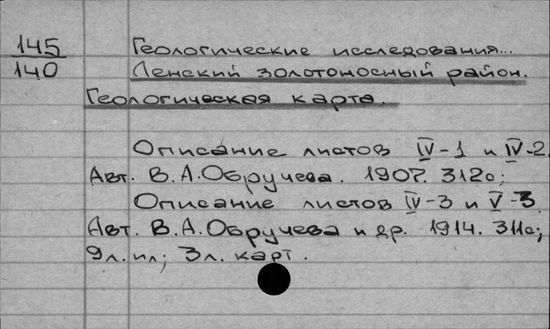 145 Геологические исследования...
140 Ленский золотоносный район.
Геологическая карта.
Описание листов IV-1 и IV-2.
Авт. В.А.Обручева. 1907. 312с;
Описание листов IV-3 и V-3.
Авт. В.А.Обручева и др. 1914. 311с;
9л.ил; 3л. карт.